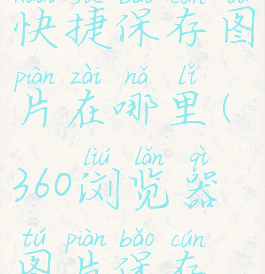 kuài jié bǎo cún tú
快捷保存图
piàn zài nǎ lǐ
片在哪里(
liú lǎn qì
360浏览器
tú piàn bǎo cún
图片保存